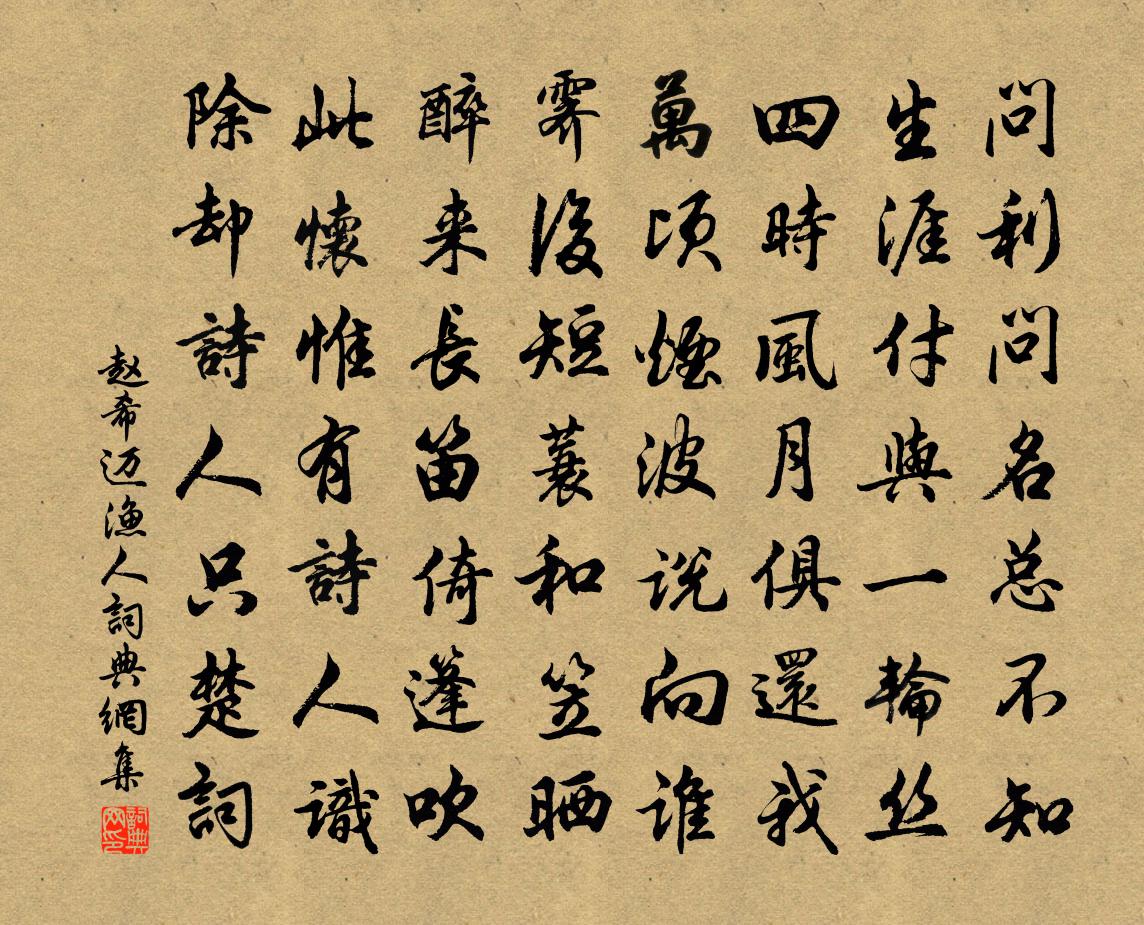 問利問名总不知
生涯付與一輪丝
四時風月俱還我
萬頃煙波説向谁
霽後短蓑和笠晒
醉来長笛倚蓬吹
此懷惟有詩人識
除却詩人只楚詞
赵希迈漁人詞典網集
詞典网印